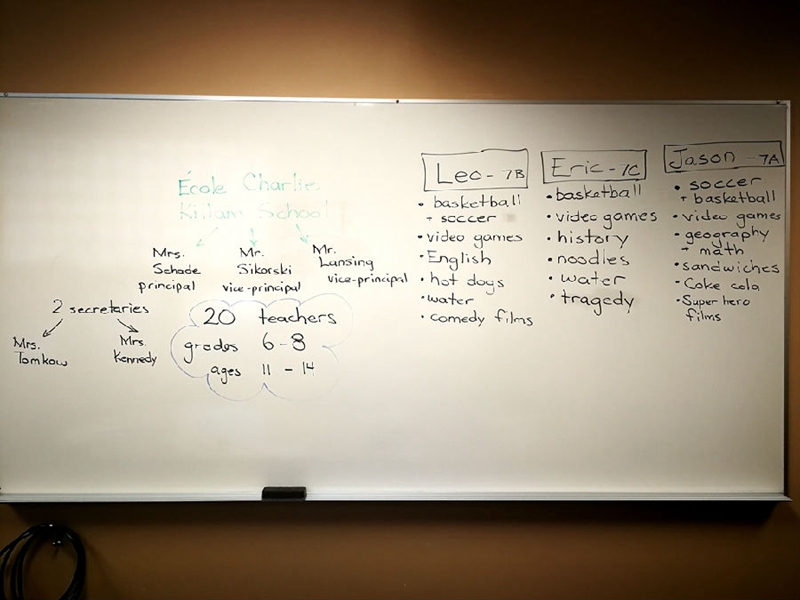 École Charlie
Killam School
Mrs.
Schade
principal
Mr.
Sikorski
vice-principal
Mr.
Lansing
vice-principal
2 secretaries
Mrs.
Tomkow
Mrs.
Kennedy
20 teachers
grades 6-8
ages 11 - 14
Leo - 7B
• basketball
+ soccer
• video games
• English
• hot dogs
• water
• comedy films
Eric - 7C
• basketball
• video games
• history
• noodles
• water
• tragedy
Jason - 7A
• soccer
+ basketball
• video games
• geography
+ math
• sandwiches
• Coke cola
• Super hero
films